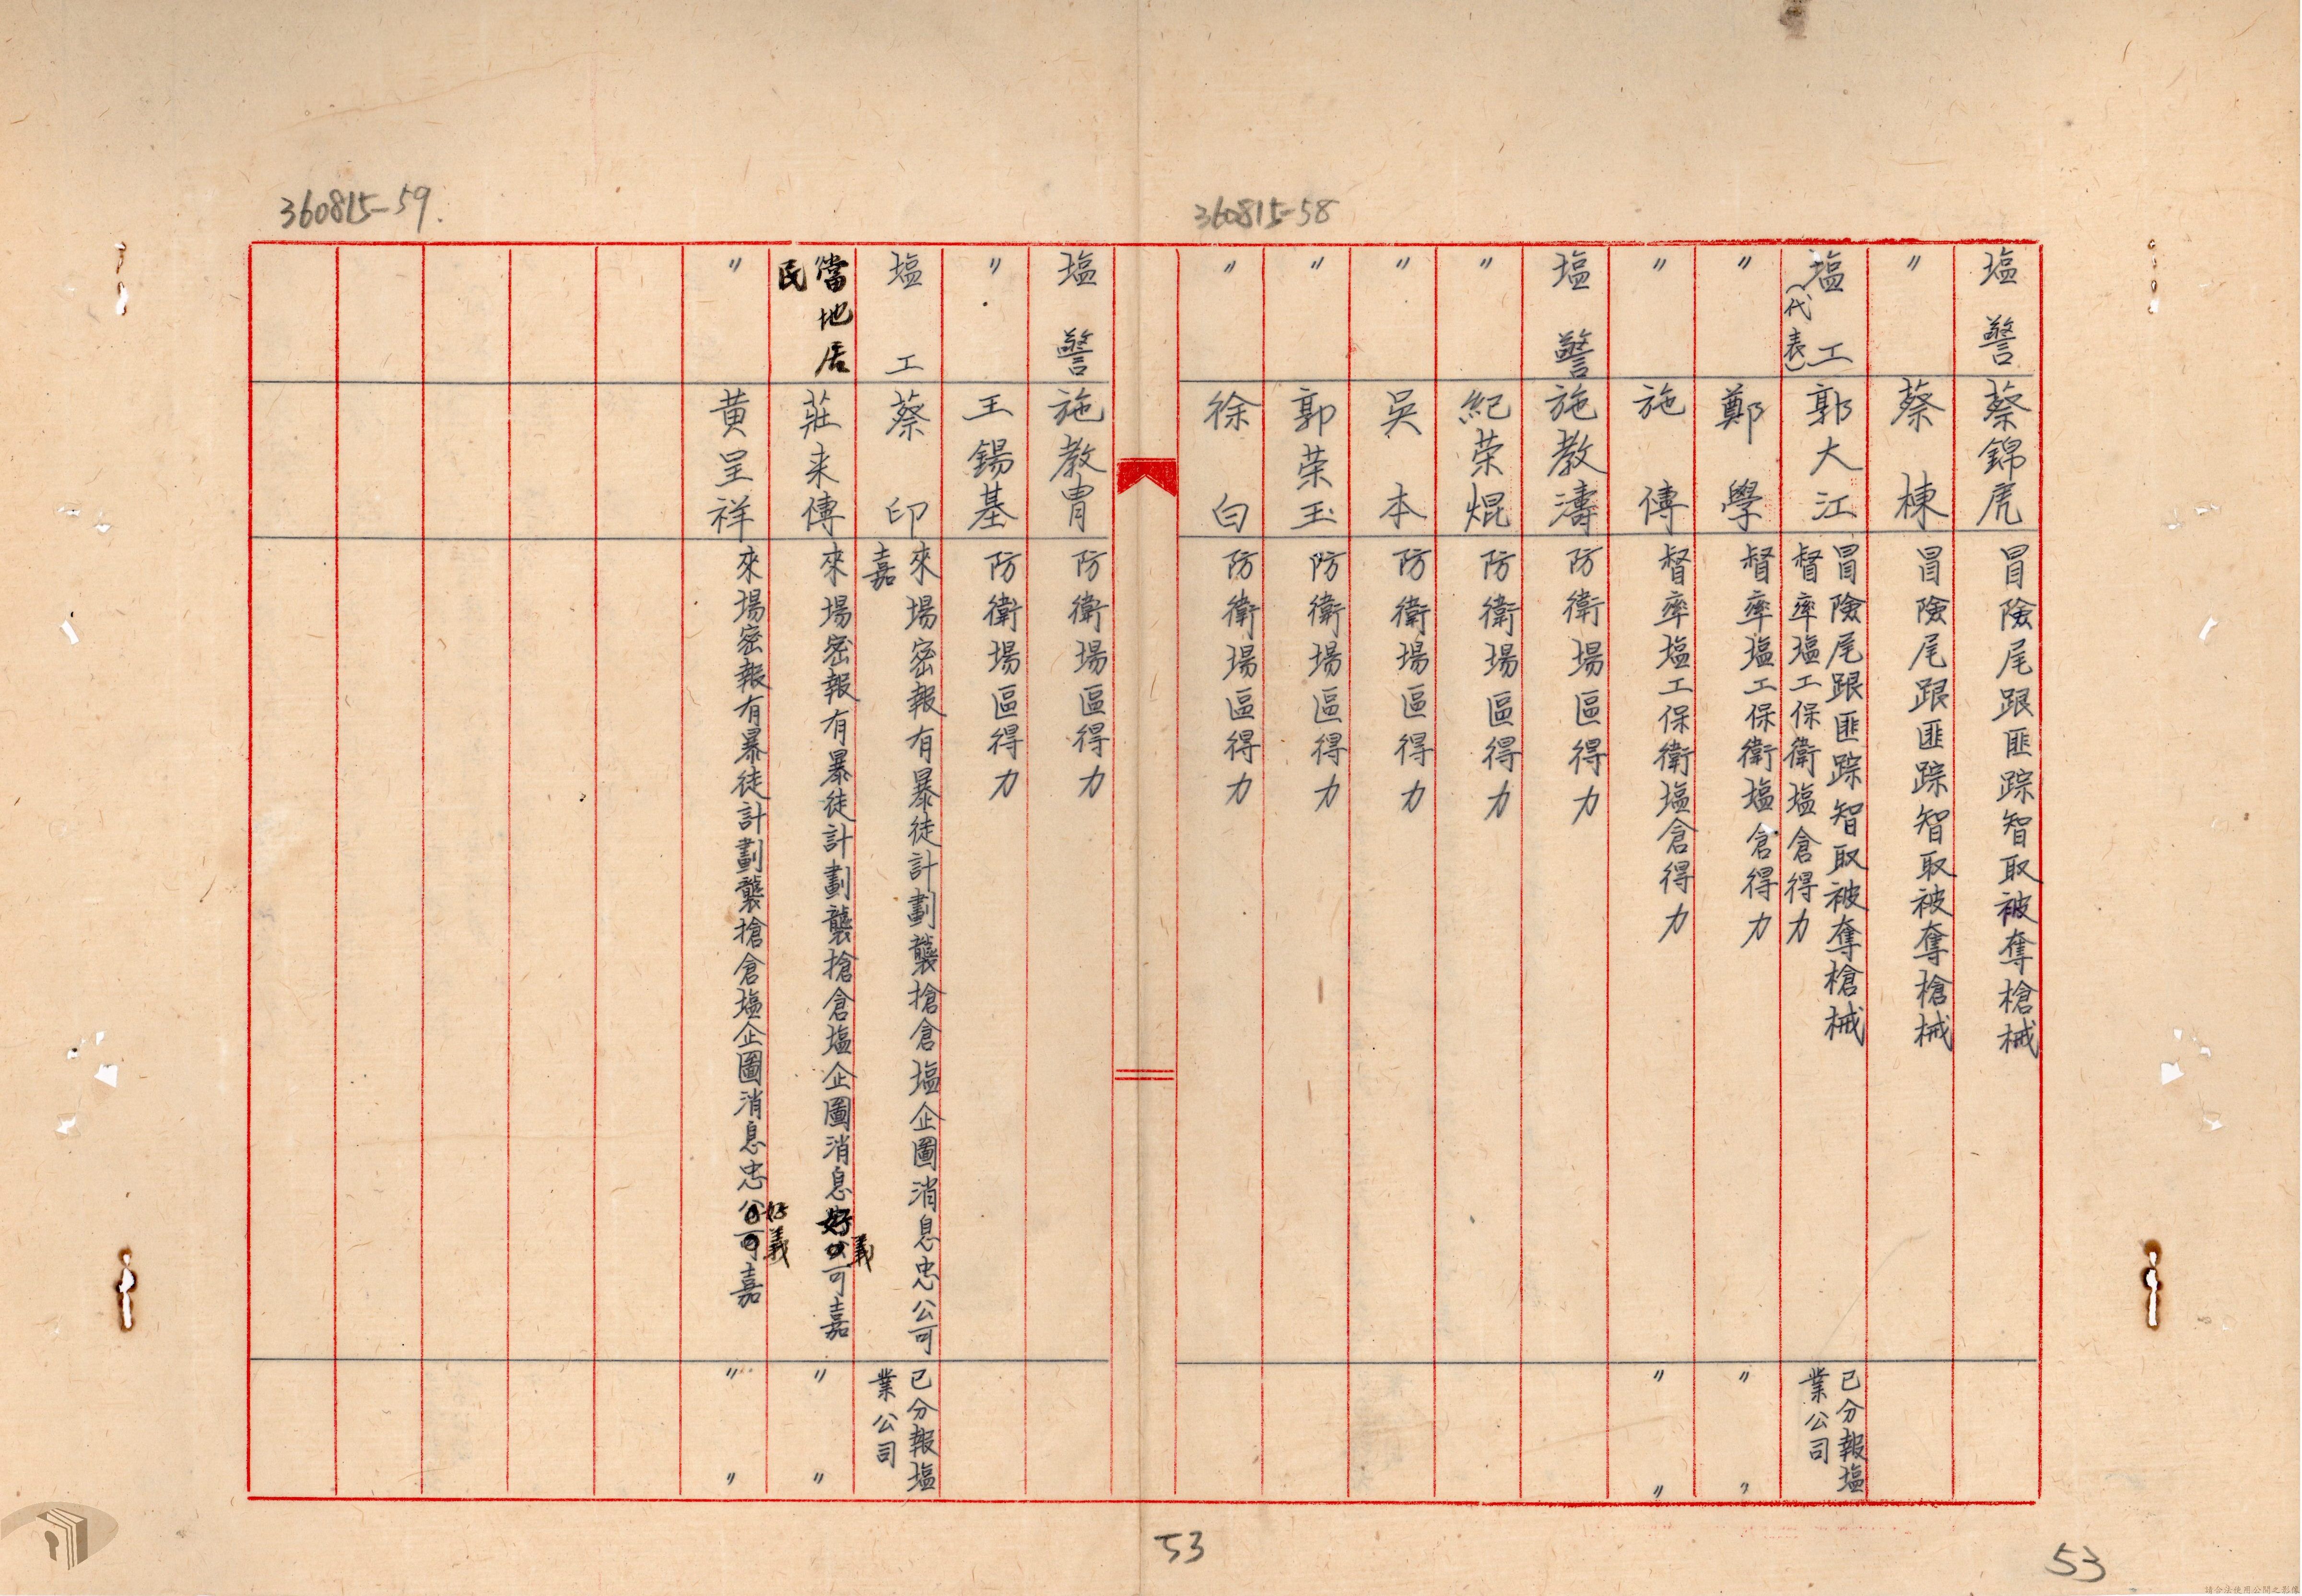 360815-58
塩警 蔡錦虎 冒險尾跟匪踪智取被奪槍械
〃 蔡棟 冒險尾跟匪踪智取被奪槍械
塩工(代表) 郭大江 冒險尾跟匪踪智取被奪槍械 督率塩工保衛塩倉得力 已分報塩業公司
〃 鄭學 督率塩工保衛塩倉得力 〃 〃
〃 施傳 督率塩工保衛塩倉得力 〃 〃
塩警 施教濤 防衛場區得力
〃 紀荣焜 防衛場區得力
〃 吳本 防衛場區得力
〃 郭荣玉 防衛場區得力
〃 徐白 防衛場區得力
360815-59.
塩警 施教胄 防衛場區得力
〃 王錫基 防衛場區得力
塩工 蔡印 來場密報有暴徒計劃襲搶倉塩企圖消息忠公可嘉 已分報塩業公司
當地居民 莊来傳 來場密報有暴徒計劃襲搶倉塩企圖消息好義可嘉 〃 〃
〃 黄呈祥 來場密報有暴徒計劃襲搶倉塩企圖消息忠公可好義嘉 〃 〃
53
53
請合法使用公開之影像